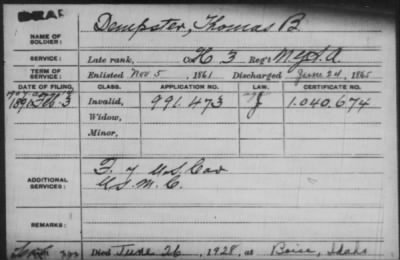 DEAD
Dempster, Thomas B
NAME OF SOLDIER:
SERVICE: Late rank, Co H 3 Reg't
TERM OF SERVICE: Enlisted Nov 5, 1861 Discharged June 24, 1865
DATE OF FILING. CLASS. APPLICATION NO. LAW. CERTIFICATE NO.
1891 Feb 3 Invalid, 991.473 J 1.040.674
Widow,
Minor,
ADDITIONAL SERVICES: F. 7 U.S. Cav
U.S.M.C.
REMARKS:
Died June 26, 1928, at Boise, Idaho